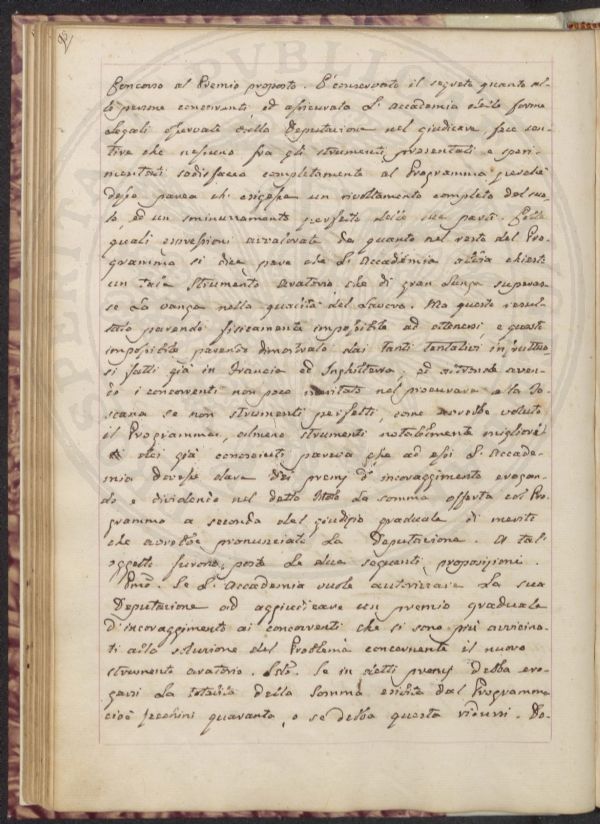 Concorso al Premio proposto. E conservato il segreto quanto al-
le persone concorrenti, ed assicurata L'Accademia delle forme
Legali osservate dalla Deputazione nel giudicare, fece sen-
tire che nessuno fra gli strumenti presentati e speri-
mentati sodisfacea completamente al Programma, perchè
desso parea ch'esigesse un rivoltamento completo del suo-
lo, ed un sminuzzamento perfetto delle sue parti. Colle
quali espressioni avvalorate da quanto nel resto del Pro-
gramma si dice pare che L'Accademia abbia chiesto
un tale strumento aratorio che di gran Lunga superas-
se La vanga nella qualità del Lavoro. Ma questo resul-
tato parendo fisicamente impossibile ad ottenersi, e questo
impossibile parendo dimostrato dai tanti tentativi infruttuo-
si fatti già in Francia ed Inghilterra; ed altronde aven-
do i concorrenti non poco meritato nel procurare a la To-
scana se non strumenti perfetti, come avrebbe voluto
il Programma, almeno strumenti notabilmente migliori
dei già conosciuti pareva che ad essi L'Accade-
mia dovesse dare dei premj d'incoraggimento erogan-
do e dividendo nel detto La somma offerta col Pro-
gramma a seconda del giudizio graduale di merito
che avrebbe pronunciato La Deputazione. A tal'
oggetto furono poste Le due seguenti proposizioni.
Pmo. Se L'Accademia vuole autorizzare La sua
Deputazione ad aggiudicare un premio graduale
d'incoraggimento ai concorrenti che si sono più avvicina-
ti alla soluzione del Problema concernente il nuovo
strumento aratorio. Sdo. Se in detti premj debba ero-
garsi La totalità della Somma esibita dal Programma
cioè zecchini quaranta, o se debba questa ridursi. Do-